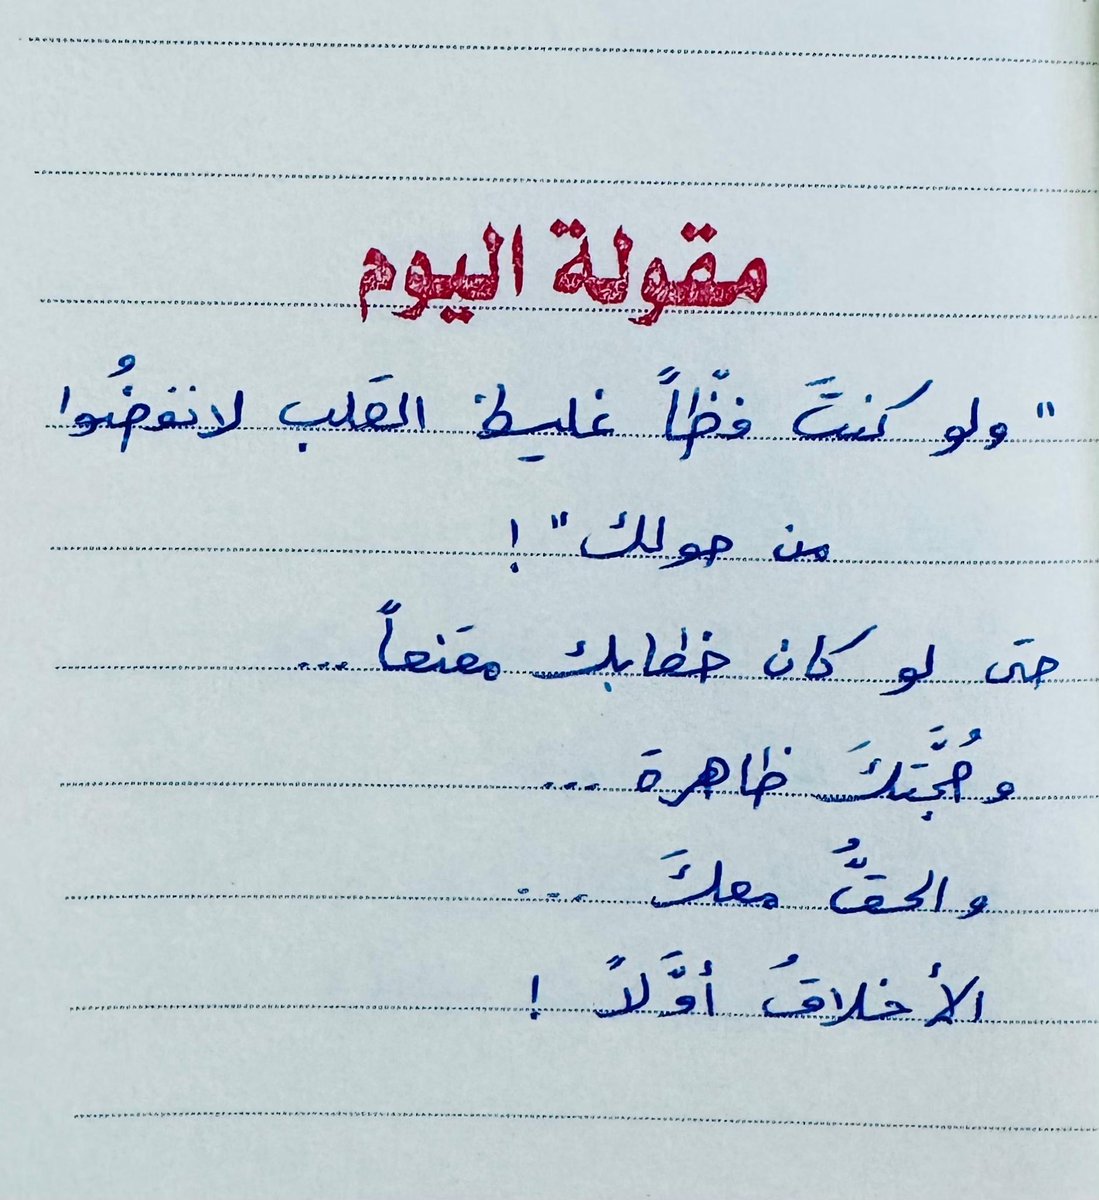 مقولة اليوم
"ولو كنتَ فظّاً غليظ القَلب لانفضُوا
من حولك"!
حتى لو كان خطابك مقنعاً...
وحُجَّتكَ ظاهرة ...
والحقُّ معكَ ...
الأخلاقُ أوَّلاً !